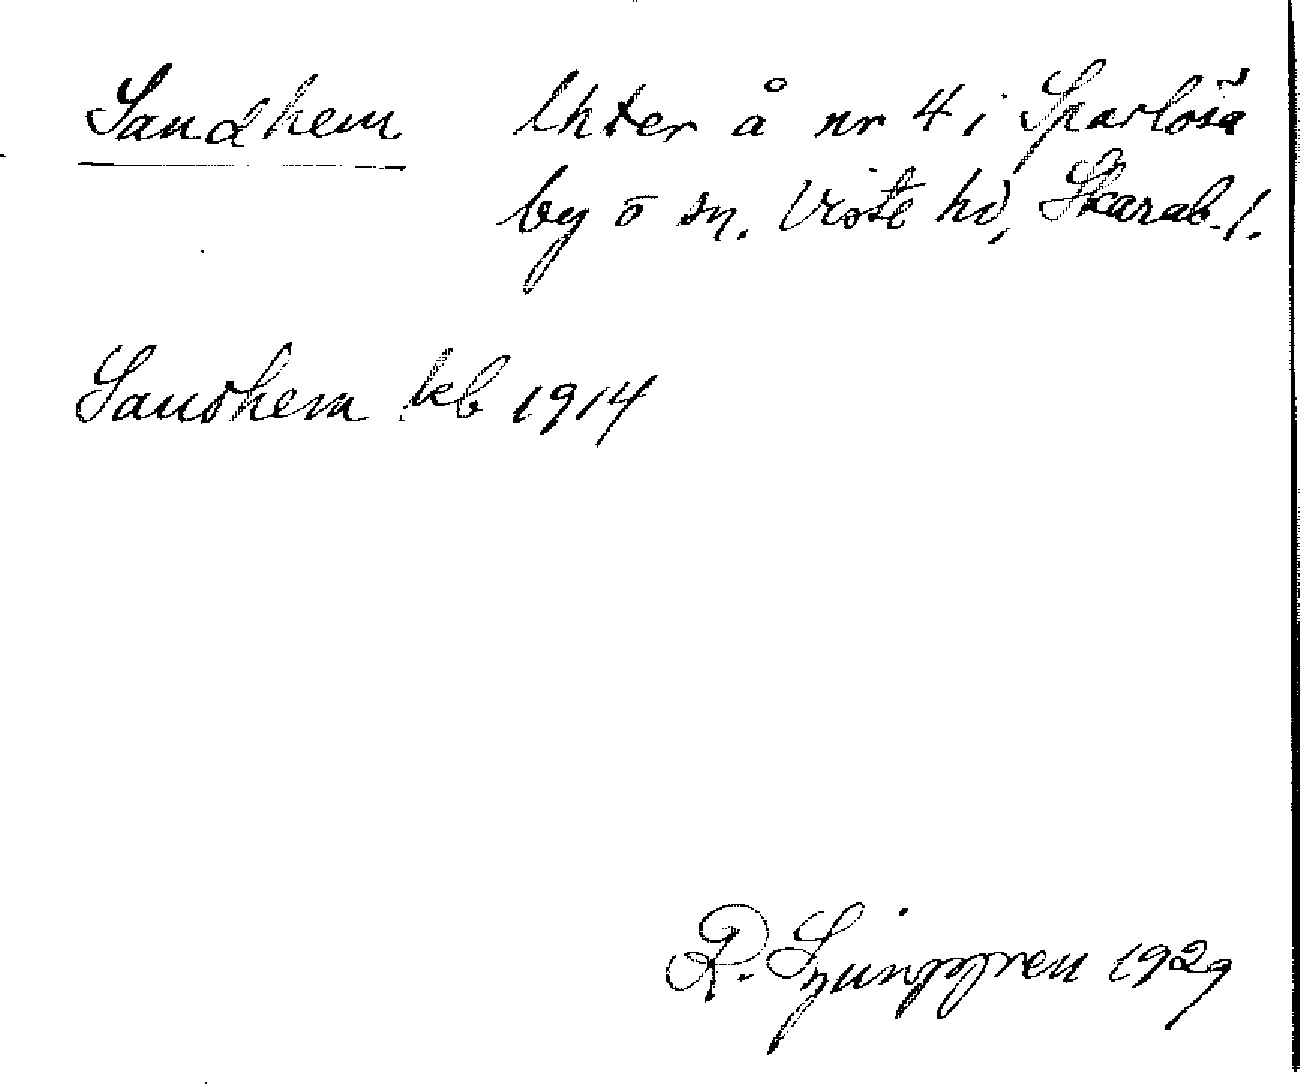 Sandhem lhter å nr 4 i Sparlösa
by o sn. Viste hd, Skarab. l.
Sandhem kb 1914
R. Ljunggren 1929